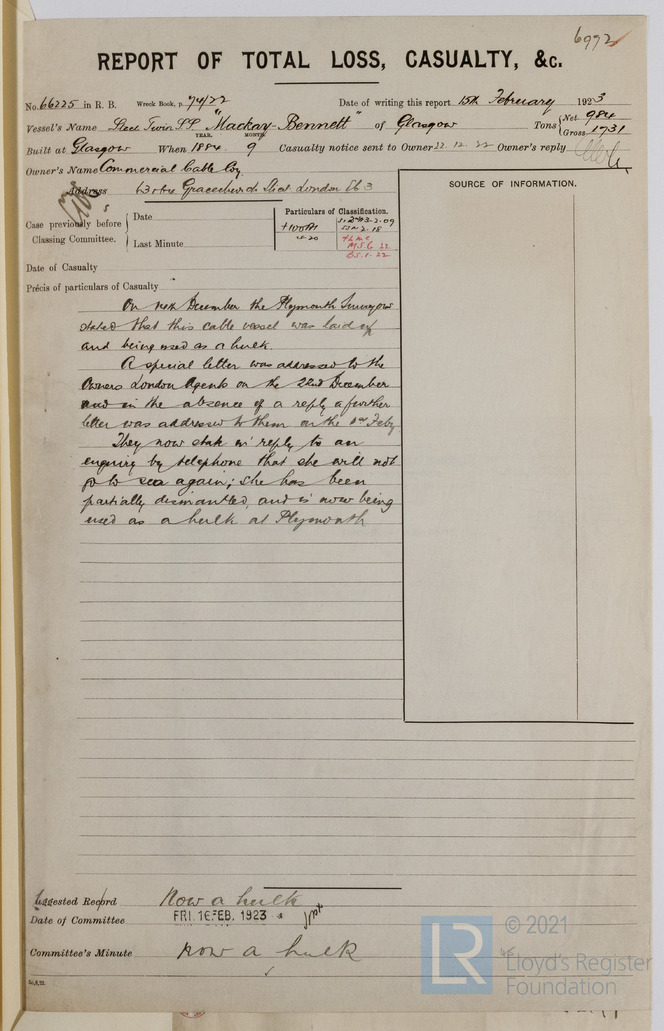 6992
REPORT OF TOTAL LOSS, CASUALTY, &c.
No. 66225 in R. B. Wreck Book, p. 74/22 Date of writing this report 15th February 1923
Vessel's Name Steel Twin SS "Mackay-Bennett" of Glasgow Tons { Net 984
Gross 1731
YEAR. MONTH.
Built at Glasgow When 1884 9 Casualty notice sent to Owner 22.12.22 Owner's reply
Owner's Name Commercial Cable Coy
Address Gracechurch Street London EC3
SOURCE OF INFORMATION.
Case previously before Classing Committee. { Date
Last Minute
Particulars of Classification.
+100A1
Date of Casualty
Précis of particulars of Casualty
On December the Plymouth Surveyors
stated that this cable vessel was laid up
and being used as a hulk.
A special letter was addressed to the
Owners London Agents on the 22nd December
and in the absence of a reply a further
letter was addressed to them on the Feby
They now state in reply to an
enquiry by telephone that she will not
go to sea again; she has been
partially dismantled, and is now being
used as a hulk at Plymouth
Suggested Record Now a hulk
Date of Committee FRI. 16 FEB. 1923
Committee's Minute Now a hulk
LR © 2021
Lloyd's Register
Foundation